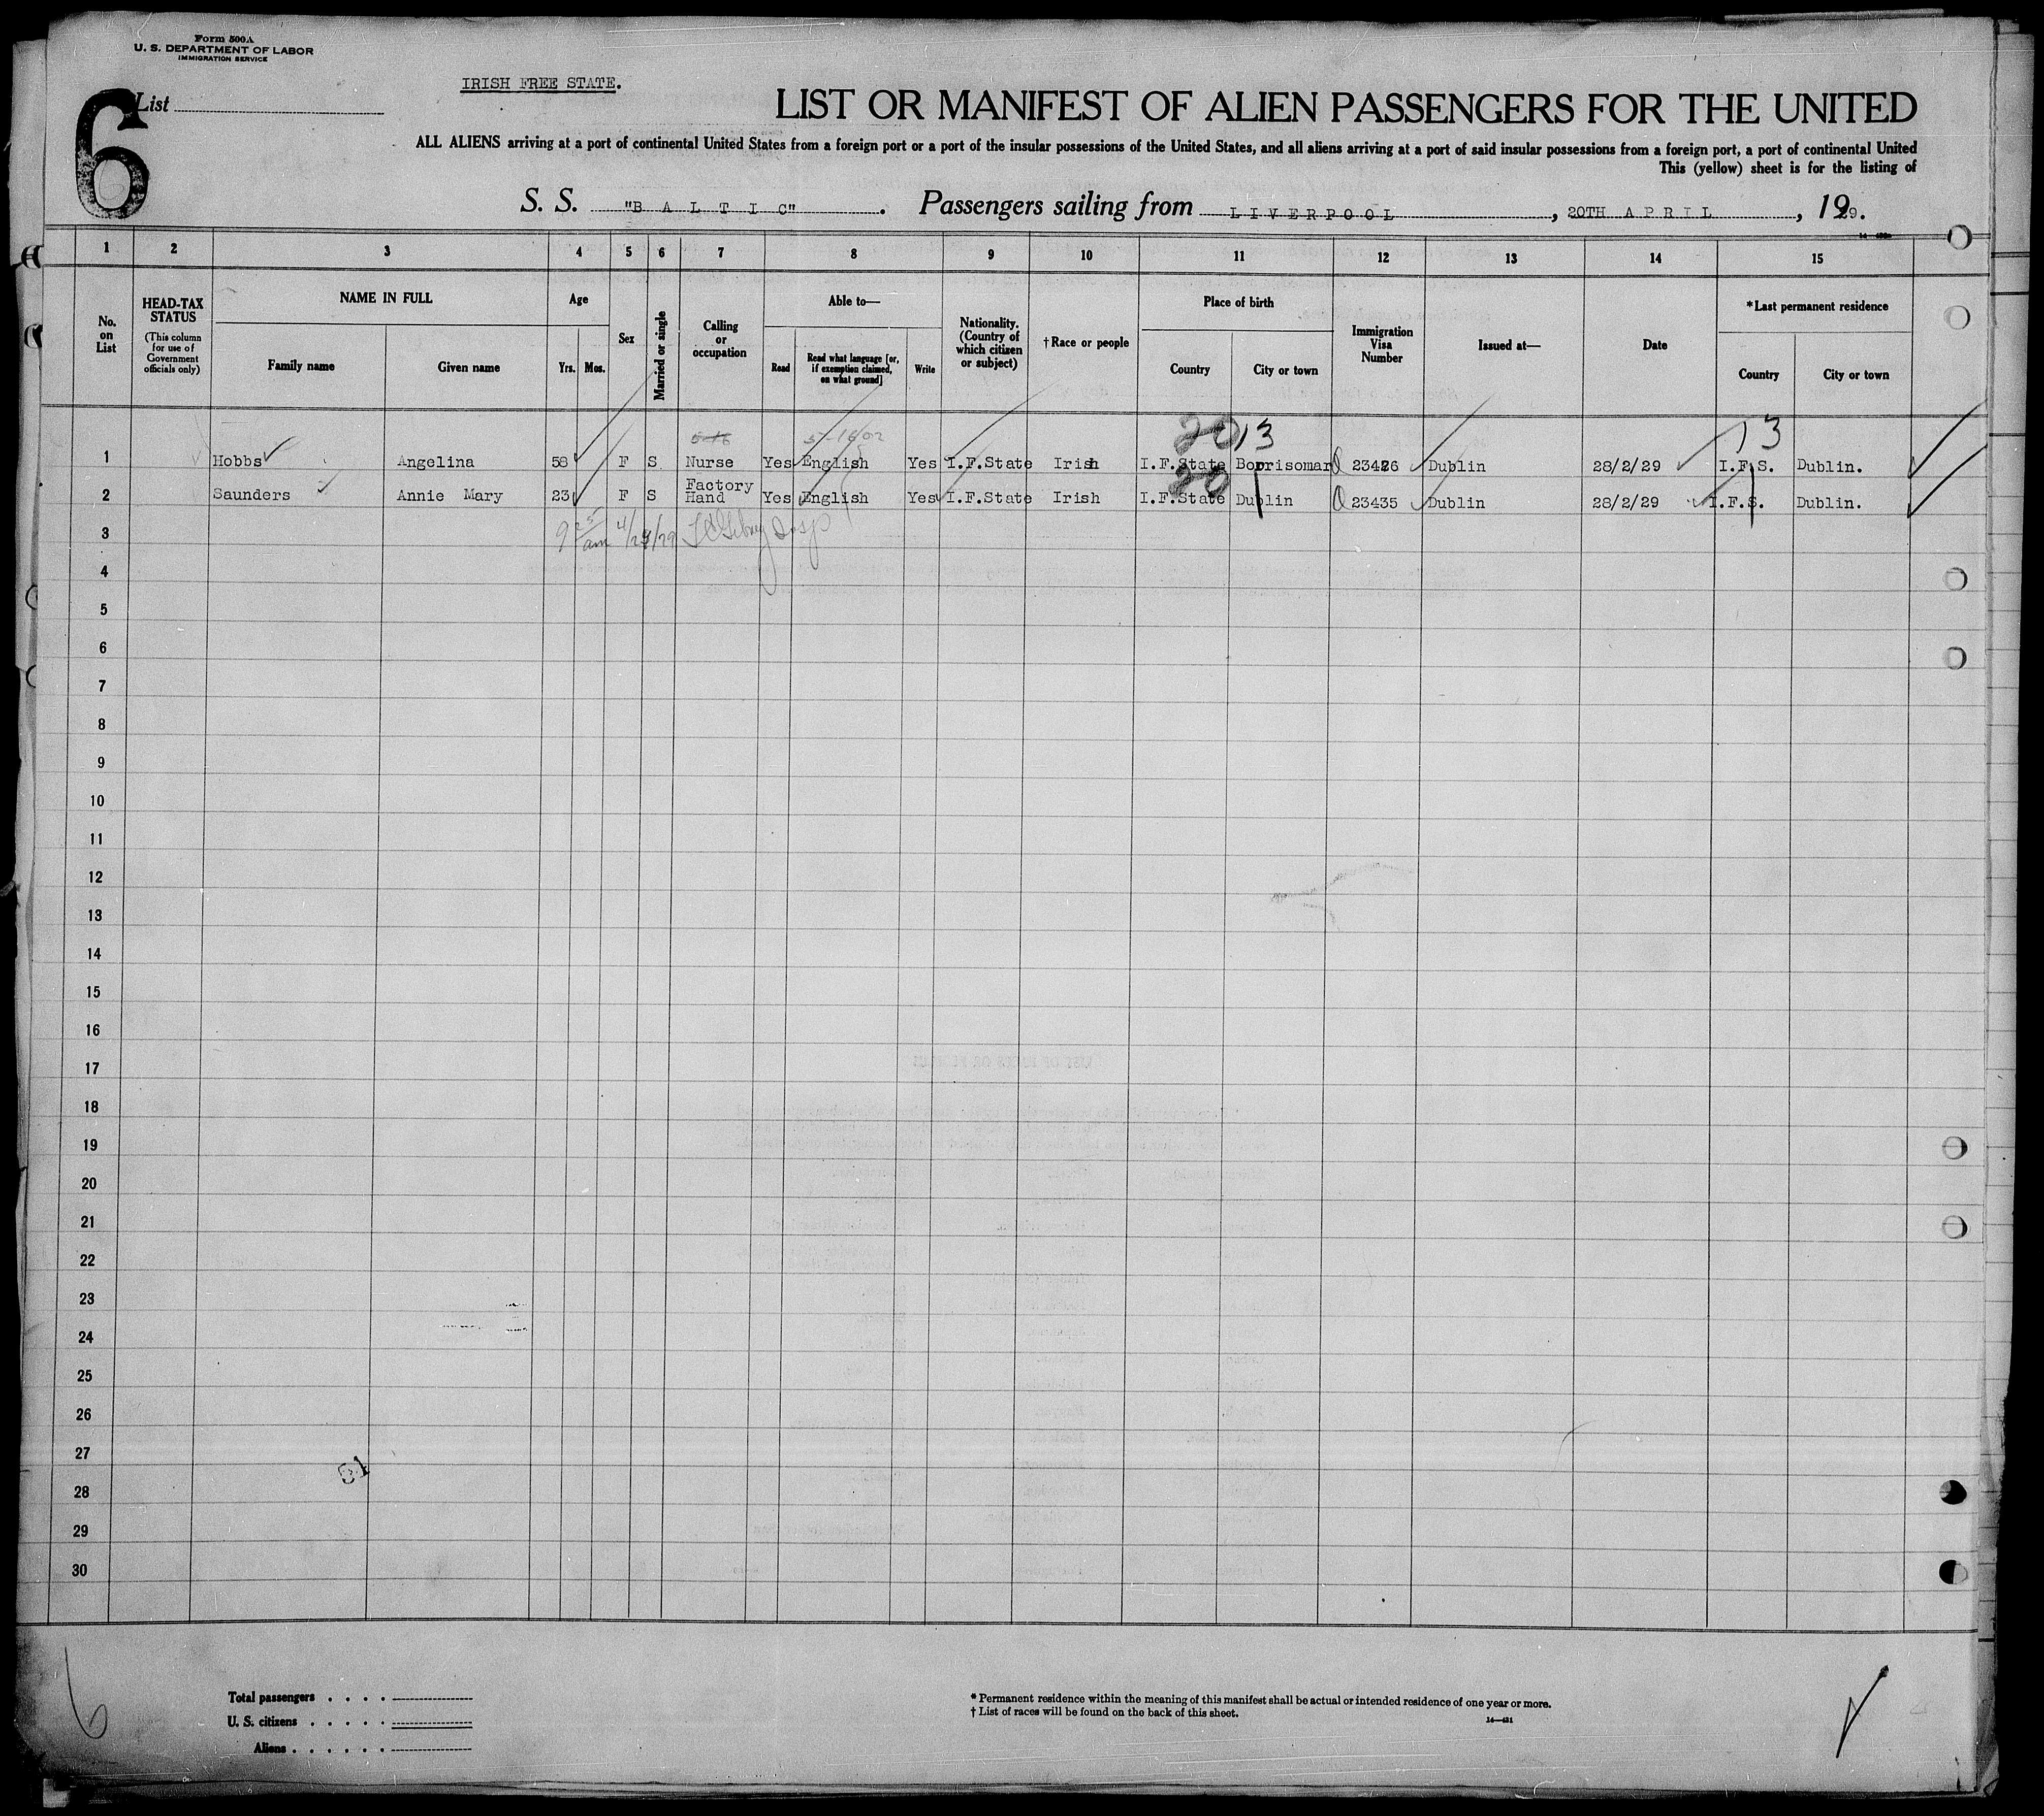 Form 500A
U. S. DEPARTMENT OF LABOR
IMMIGRATION SERVICE
IRISH FREE STATE.
6
List
LIST OR MANIFEST OF ALIEN PASSENGERS FOR THE UNITED
ALL ALIENS arriving at a port of continental United States from a foreign port or a port of the insular possessions of the United States, and all aliens arriving at a port of said insular possessions from a foreign port, a port of continental United
This (yellow) sheet is for the listing of
S. S. "B A L T I C". Passengers sailing from LIVERPOOL, 20TH APRIL, 1929.
1 2 3 4 5 6 7 8 9 10 11 12 13 14 15
No. on List
HEAD-TAX STATUS
(This column for use of Government officials only)
NAME IN FULL
Family name
Given name
Age
Yrs.
Mos.
Sex
Married or single
Calling or occupation
Able to—
Read
Read what language [or, if exemption claimed, on what ground]
Write
Nationality. (Country of which citizen or subject)
†Race or people
Place of birth
Country
City or town
Immigration Visa Number
Issued at—
Date
*Last permanent residence
Country
City or town
20 13 13
1 Hobbs Angelina 58 F S Nurse Yes English Yes I.F.State Irish I.F.State Borrisomar 23426 Dublin 28/2/29 I.F.S. Dublin.
20
2 Saunders Annie Mary 23 F S Factory Hand Yes English Yes I.F.State Irish I.F.State Dublin 23435 Dublin 28/2/29 I.F.S. Dublin.
3 9 25 am 4/29/29
4
5
6
7
8
9
10
11
12
13
14
15
16
17
18
19
20
21
22
23
24
25
26
27
28
29
30
6
Total passengers . . . .
U. S. citizens . . . . .
Aliens . . . . . .
* Permanent residence within the meaning of this manifest shall be actual or intended residence of one year or more.
† List of races will be found on the back of this sheet.